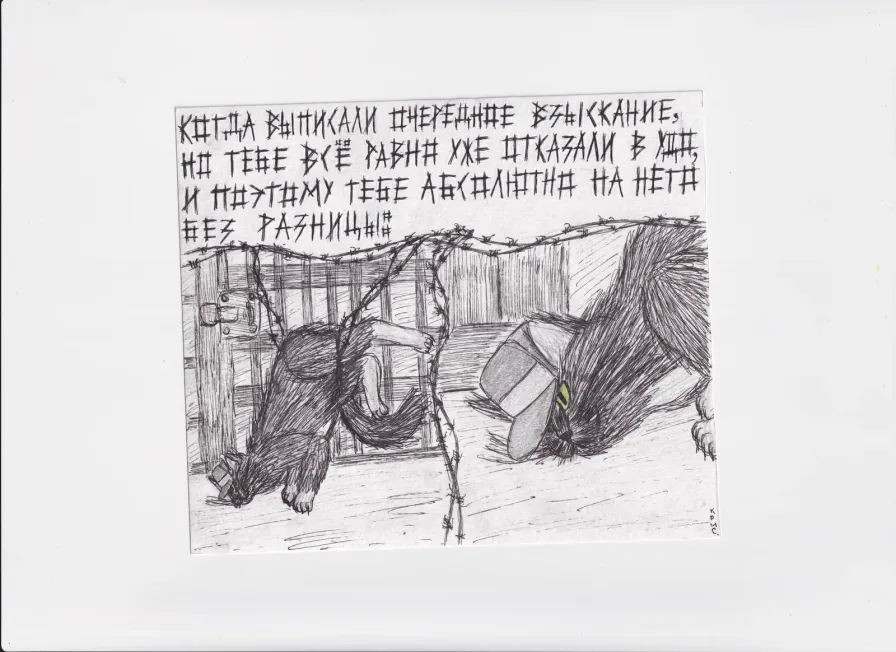 КОГДА ВЫПИСАЛИ ОЧЕРЕДНОЕ ВЗЫСКАНИЕ,
НО ТЕБЕ ВСЁ РАВНО УЖЕ ОТКАЗАЛИ В УДО,
И ПОЭТОМУ ТЕБЕ АБСОЛЮТНО НА НЕГО
БЕЗ РАЗНИЦЫ: